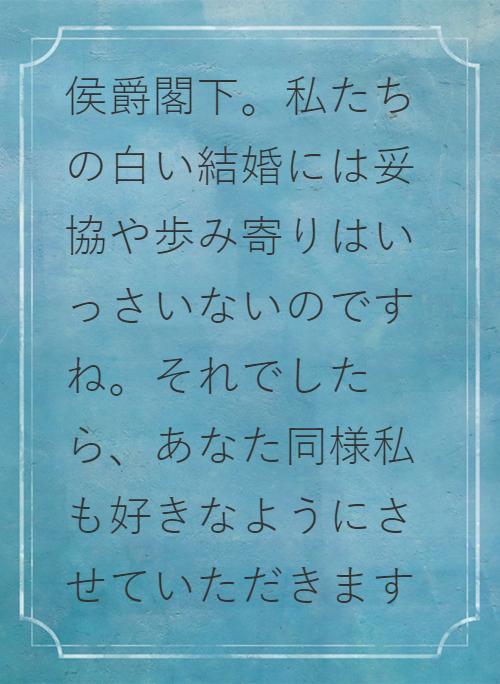 侯爵閣下。私たち
の白い結婚には妥
協や歩み寄りはい
っさいないのです
ね。それでした
ら、あなた同様私
も好きなようにさ
せていただきます